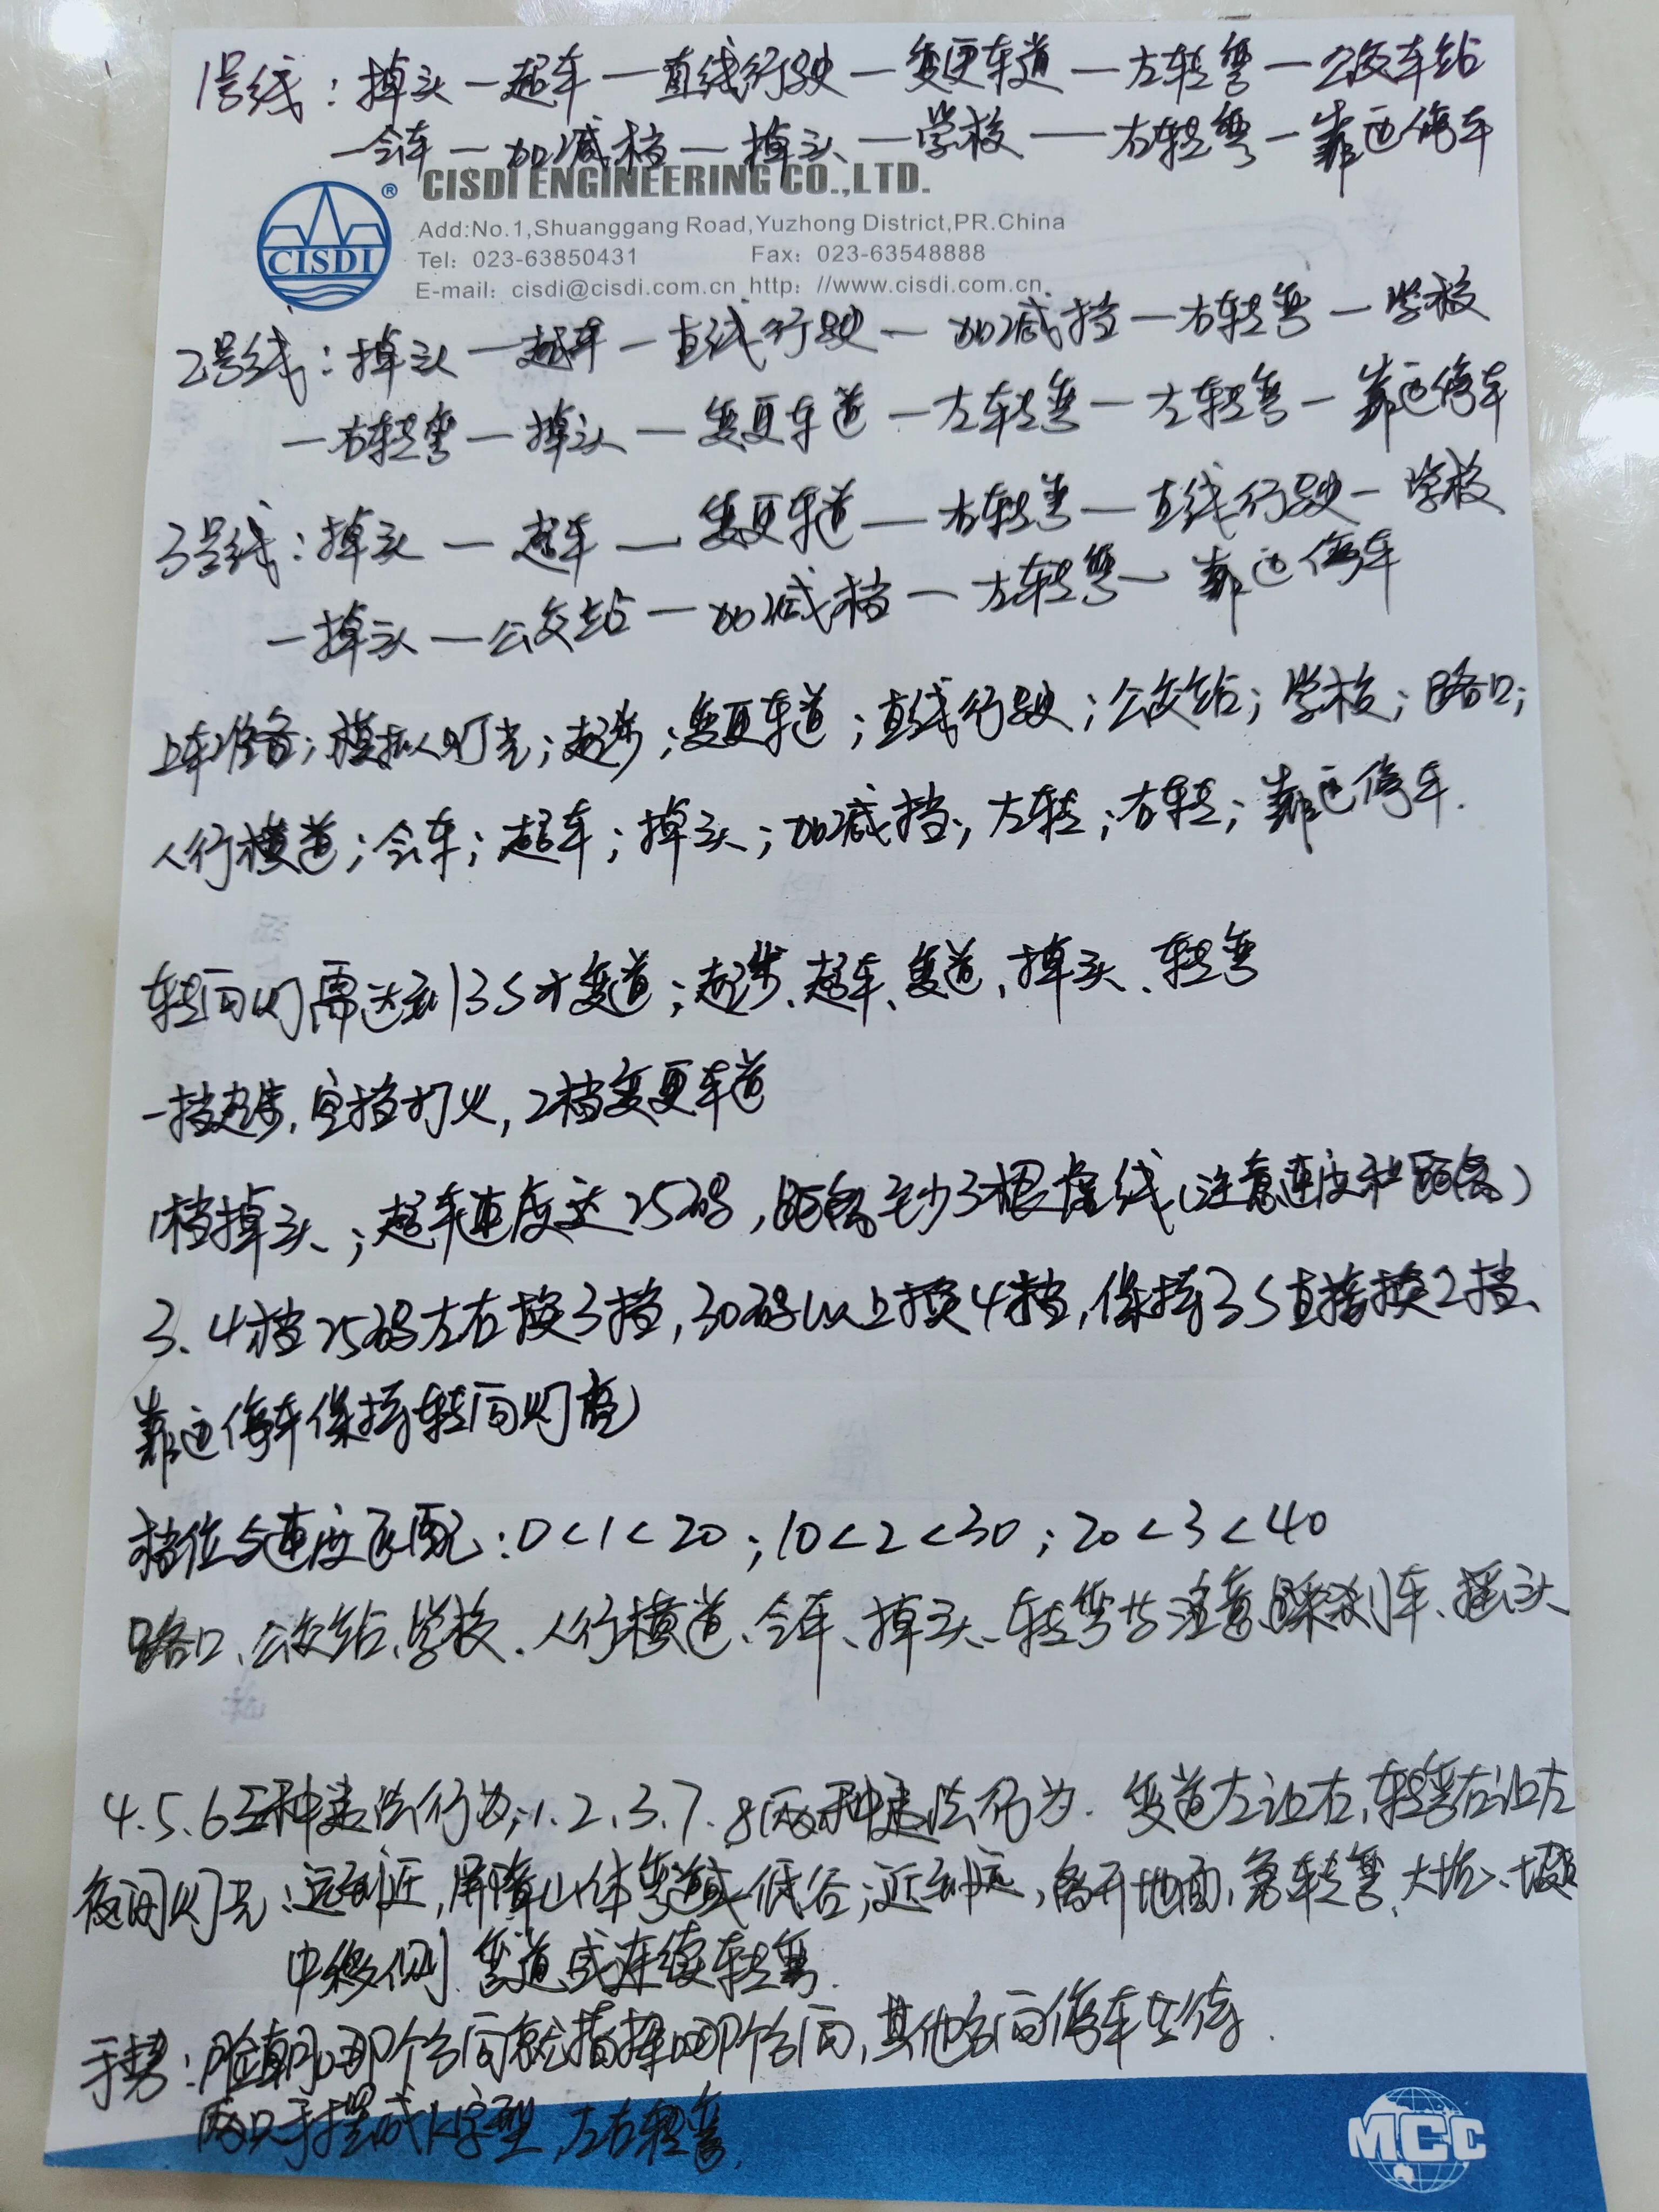 1号线：掉头—超车—直线行驶—变更车道—左转弯—公交车站
—会车—加减档—掉头—学校—右转弯—靠边停车
CISDI ENGINEERING CO.,LTD.
CISDI ®
Add:No.1,Shuanggang Road,Yuzhong District,PR.China
Tel: 023-63850431 Fax: 023-63548888
E-mail: cisdi@cisdi.com.cn http: //www.cisdi.com.cn
2号线：掉头—超车—直线行驶—加减挡—右转弯—学校
—右转弯—掉头—变更车道—左转弯—左转弯—靠边停车
3号线：掉头—超车—变更车道—右转弯—直线行驶—学校
—掉头—公交站—加减档—左转弯—靠边停车
上车准备；模拟灯光；起步；变更车道；直线行驶；公交站；学校；路口；
人行横道；会车；超车；掉头；加减挡；左转；右转；靠边停车.
转向灯需达到3S才变道；起步、超车、变道、掉头、转弯
一挡起步,空挡打火,2档变更车道
1档掉头；超车速度达25码,距离至少3根虚线(注意速度和距离)
3、4档25码左右换3挡,30码以上换4挡,保持3S直接换2挡、
靠边停车保持转向灯亮
档位与速度匹配：0<1<20；10<2<30；20<3<40
路口、公交站、学校、人行横道、会车、掉头、转弯应注意踩刹车、摇头
4.5.6三种违法行为；1.2.3.7.8两种违法行为. 变道左让右,转弯右让左
夜间灯光：远到近,屏障山体弯道或低谷；近到远,离开地面,急转弯、大坑、坡
中移侧、弯道或连续转弯.
手势：脸朝哪个方向就指挥哪个方向,其他方向停车等待.
两只手摆成K字型,左右转弯.
MCC